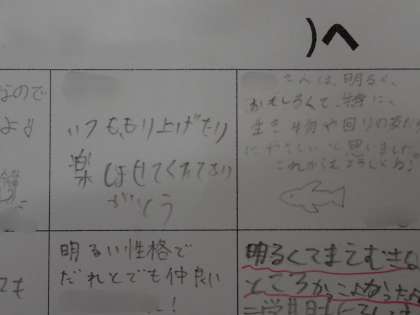 )へ
なので
いつももり上げたり
楽しませてくれてあり
がとう
さんは、明るく、
おもしろくて、特に、
生き物や回りの友だち
にやさしいと思いました。
これからもよろしくね。
明るい性格で
だれとでも仲良い
ー!
明るくてまえむきな
ところがかっこよかった
ても